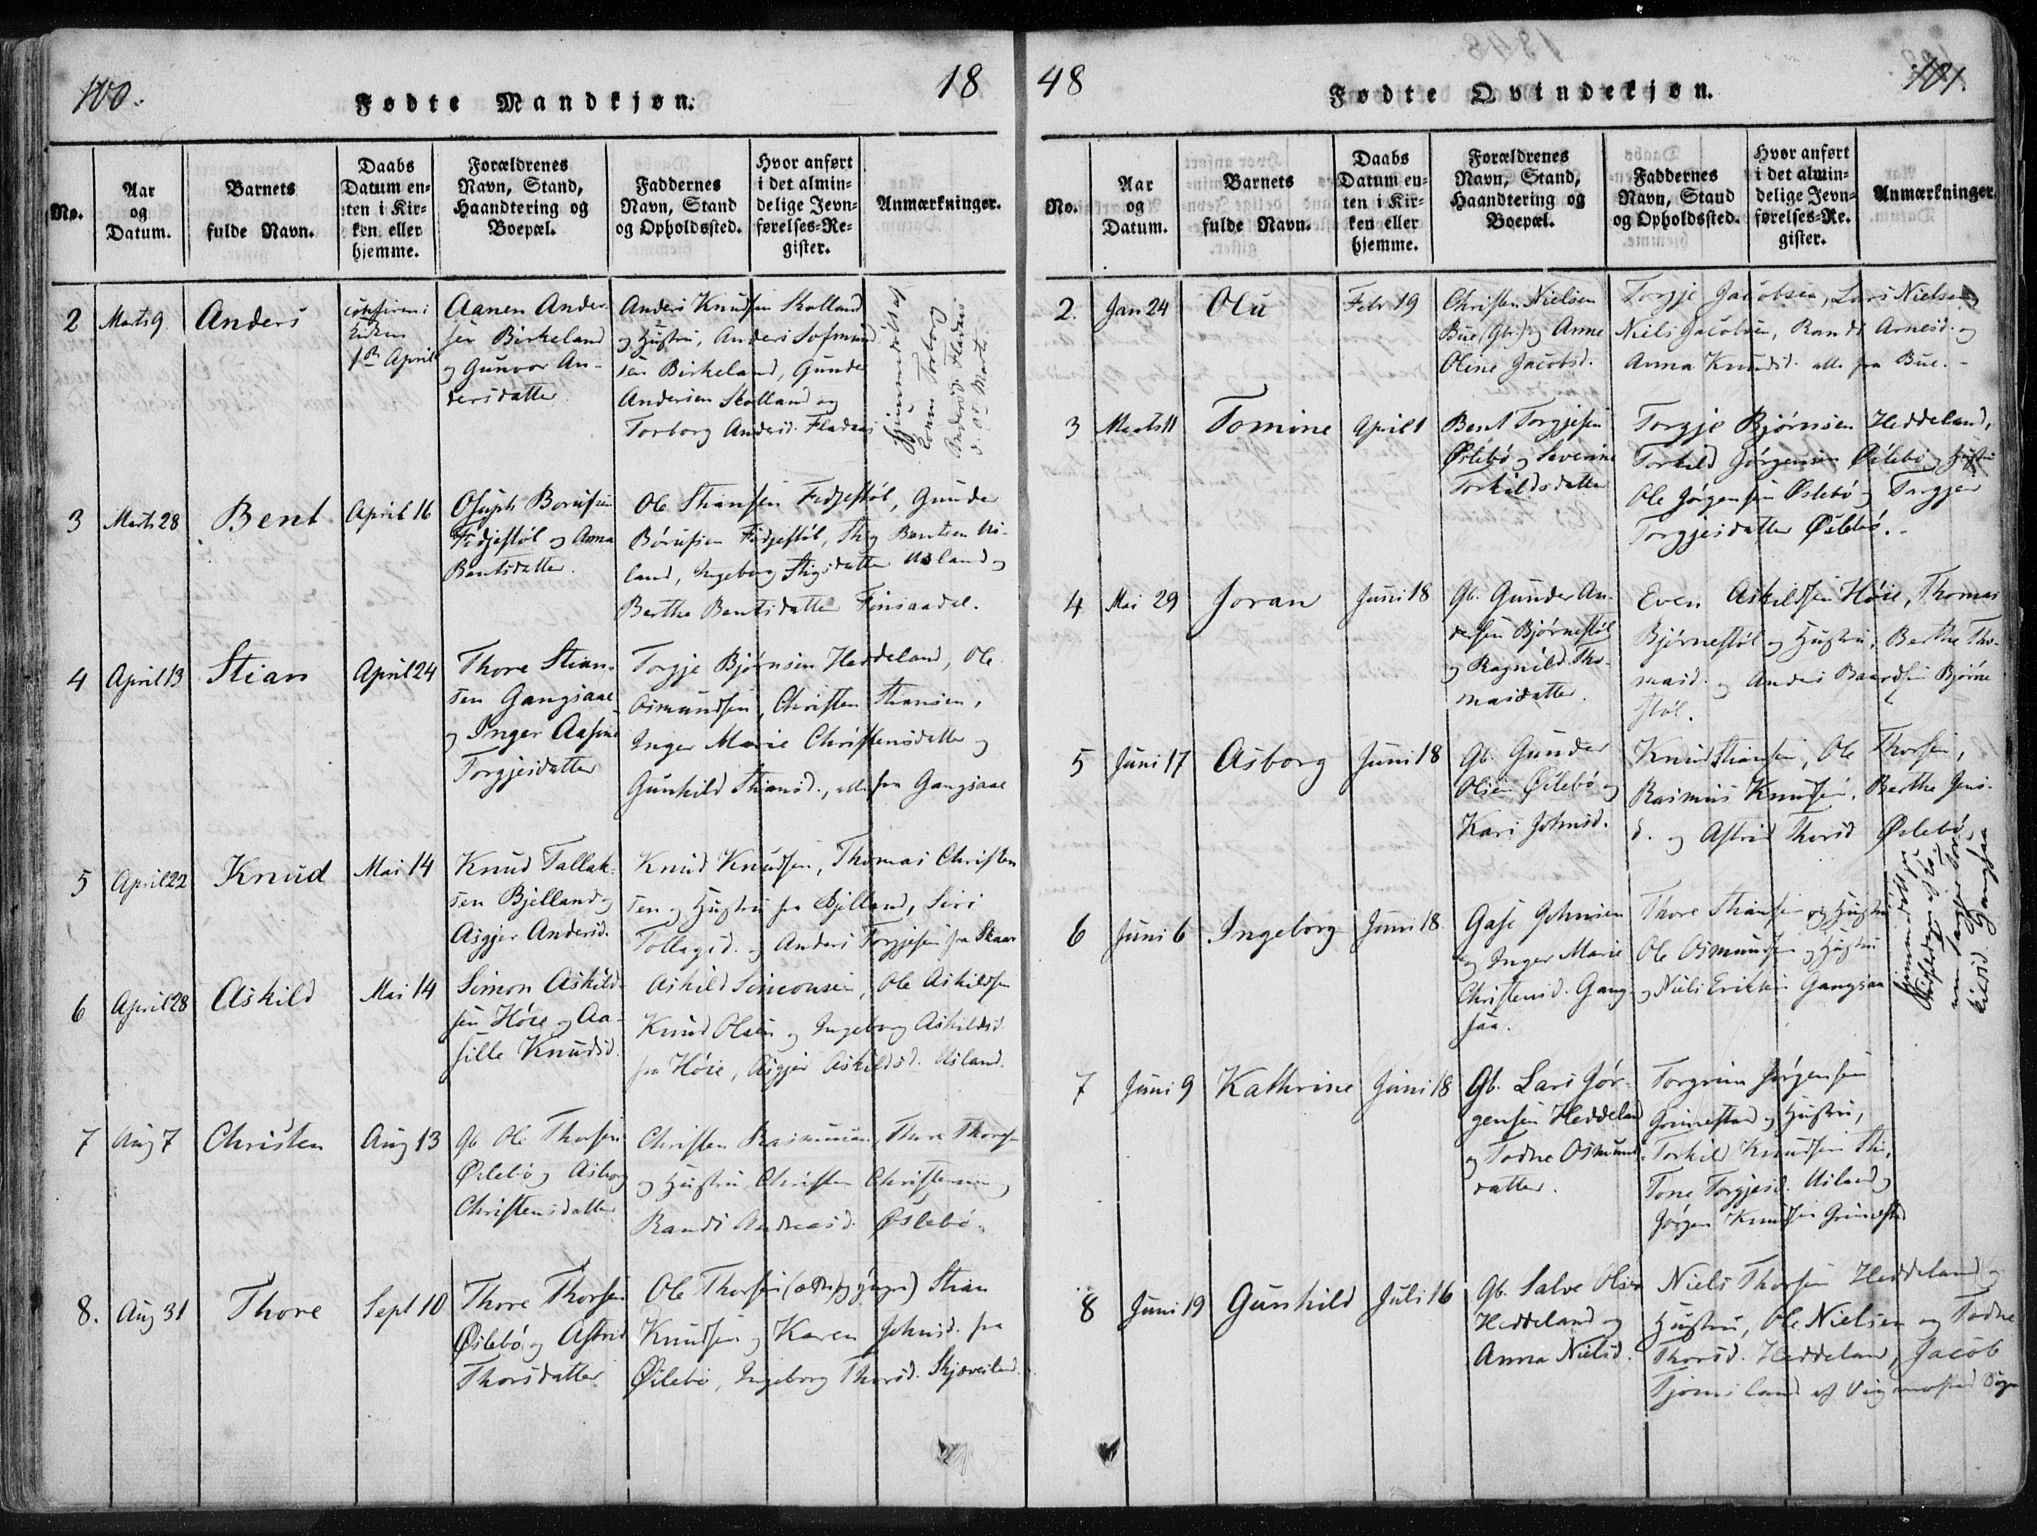 100.
18
Fødte Mandkjøn.
No.
Aar
og
Datum.
Barnets
fulde Navn.
Daabs
Datum en-
ten i Kir-
ken eller
hjemme.
Forældrenes
Navn, Stand,
Haandtering og
Boepæl.
Faddernes
Navn, Stand
og Opholdssted.
Hvor anført
i det almin-
delige Jevn-
førelses-Re-
gister.
Anmærkninger.
2
Marts 9
Anders
Kirken
1ste April
Aanen Ander-
sen Birkeland
og Gunvor An-
dersdatter
Anders Knudsen Skolland
og Hustru, Anders
sen Birkeland, Gunder
Andersen Skolland og
Torborg Andersd. Fladaas
Hjemmedøbt af
Torborg
Andersd. Fladaas
Marts.
3
Marts 28
Bent
April 16
Osuph Børufsen
Fidjestøl og Anna
Bentsdatter.
Ole Stiansen Fidjestøl, Gunder
Børufsen Fidjestøl, Stig Bentsen Us-
land, Ingeborg Stigsdatter Usland og
Berthe Bentsdatter Finsaadal.
4
April 13
Stian
April 24
Thore Stian-
sen Gangsaae
og Inger Aasine
Torgjesdatter
Torgje Bjørnsen Heddeland, Ole
Osmundsen, Christen Stiansen,
Inger Marie Christensdatter og
Gunhild Stiansd., alle fra Gangsaae
5
April 22
Knud
Mai 14
Knud Tallak-
sen Bjelland og
Asgjer Andersd.
Knud Knudsen, Thomas Christen
sen og Hustru fra Bjelland, Siri
Tollagsd. og Anders Torgjesen fra Skaar
6
April 28
Askild
Mai 14
Simon Askild-
sen Høie og Aa-
sille Knudsd.
Askild Simonsen, Ole Askildsen
Knud Olsen og Ingeborg Askildsd.
fra Høie, Asgjer Askildsd. Usland.
7
Aug 7
Christen
Aug 13
Gb. Ole Thorsen
Øslebø og Asborg
Christensdatter
Christen Rasmussen, Thore Thorsen
og Hustru, Christen Christensen og
Randi Andreasd. Øslebø.
8.
Aug 31
Thore
Sept 10
Thore Thorsen
Øslebø og Astrid
Thorsdatter
Ole Thorsen Stian
Knudsen og Karen Johnsd. fra
Øslebø, Ingeborg Thorsd. Skjævesland.
48
101.
Fødte Qvindekjøn.
No.
Aar
og
Datum.
Barnets
fulde Navn.
Daabs
Datum en-
ten i Kir-
ken eller
hjemme.
Forældrenes
Navn, Stand,
Haandtering og
Boepæl.
Faddernes
Navn, Stand
og Opholdssted.
Hvor anført
i det almin-
delige Jevn-
førelses-Re-
gister.
Anmærkninger.
2.
Jan 24
Olu
Febr 19
Christen Nielsen
Bue (Gb.) og Anne
Oline Jacobsd.
Torgje Jacobsen, Lars Nielsen
Niels Jacobsen, Randi Arnesd. og
Anna Knudsd. alle fra Bue.
3
Marts 11
Tomine
April 1
Bent Torgjesen
Øslebø og Severine
Torkildsdatter
Torgje Bjørnsen Heddeland,
Torkild Jørgensen Øslebø og Hustru
Ole Jørgensen Øslebø og Torgjer
Torgjesdatter Øslebø.
4
Mai 29
Joran
Juni 18
Gb. Gunder An-
dersen Bjørnestøl
og Ragnild Tho-
masdatter.
Even Askildsen Høie, Thomas
Bjørnestøl og Hustru, Berthe Tho-
masd. og Anders Baardsen Bjørne-
støl.
5
Juni 17
Asborg
Juni 18
Gb. Gunder
Olsen Øslebø og
Kari Johnsd.
Knud Stiansen, Ole Thorsen,
Rasmus Knudsen, Berthe Jens-
d. og Astrid Thorsd Øslebø
6
Juni 6
Ingeborg
Juni 18.
Gase Johnsen
og Inger Marie
Christensd. Gang-
saa.
Thore Stiansen og Hustru
Ole Osmundsen og Hustru
og Niels Eriksen Gangsaa
Hjemmedøbt
Gangsaa
7
Juni 9
Kathrine
Juni 18
Gb. Lars Jør-
gensen Heddeland
og Todne Osmund-
datter.
Torgrim Jørgensen
Grimestad og Hustru,
Torkild Knudsen
Tone Torgjesd. Usland og
Jørgen Knudsen Grimestad
8
Juni 19
Gunhild
Juli 16
Gb. Salve Olsen
Heddeland og
Anna Nielsd.
Niels Thorsen Heddeland og
Hustru, Ole Nielsen og Todne
Thorsd. Heddeland, Jacob
Tjomsland af Vigmostad Sogn